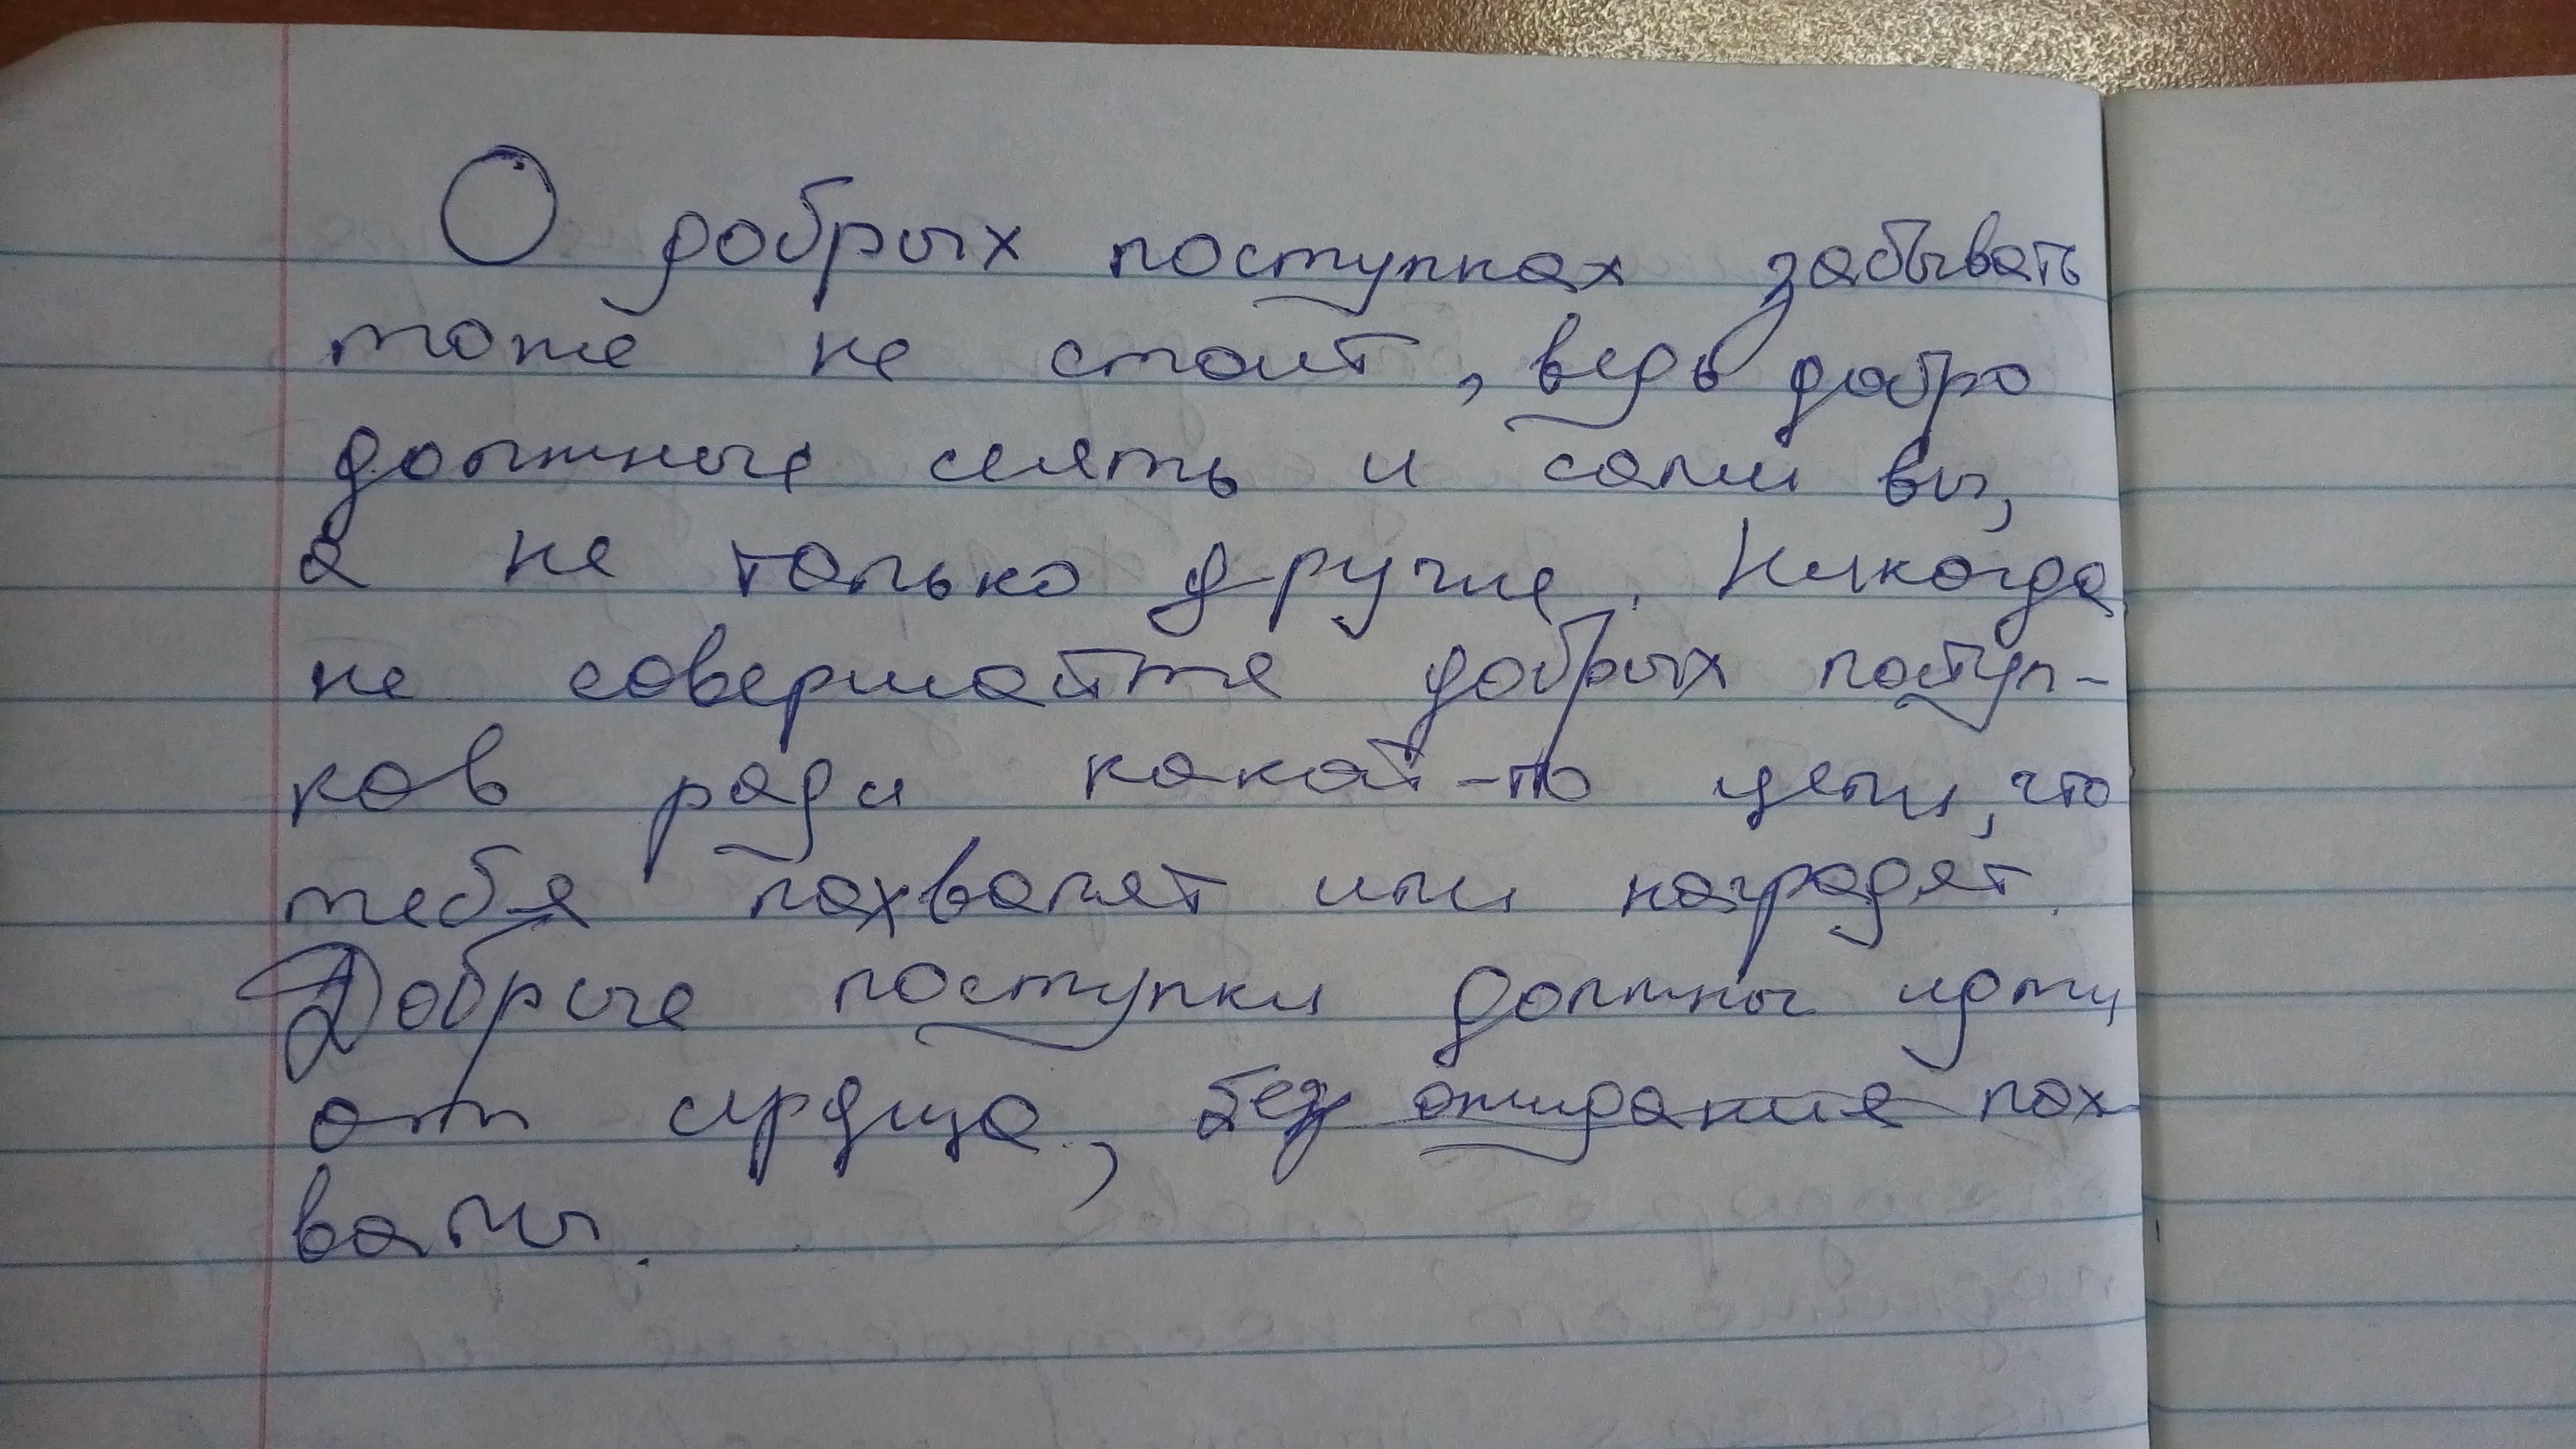 О добрых поступках забывать
тоже не стоит, ведь добро
должные сеять и сами вы,
а не только другие. Никогда
не совершайте добрых поступ-
ков ради какой-то цели, что
тебя похвалят или наградят.
Добрые поступки должны идти
от сердца, без ожидания пох
валы.